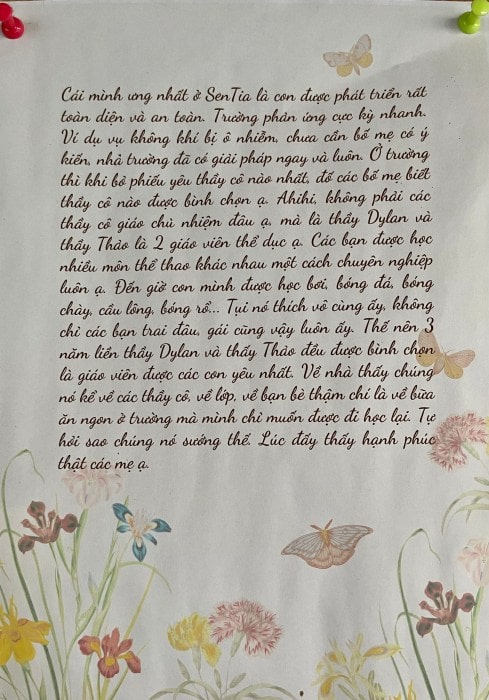 Cái mình ưng nhất ở SenTia là con được phát triển rất
toàn diện và an toàn. Trường phản ứng cực kỳ nhanh.
Ví dụ vụ không khí bị ô nhiễm, chưa cần bố mẹ có ý
kiến, nhà trường đã có giải pháp ngay và luôn. Ở trường
thì khi bỏ phiếu yêu thầy cô nào nhất, đố các bố mẹ biết
thầy cô nào được bình chọn ạ. Ahihi, không phải các
thầy cô giáo chủ nhiệm đâu ạ, mà là thầy Dylan và
thầy Thảo là 2 giáo viên thể dục ạ. Các bạn được học
nhiều môn thể thao khác nhau một cách chuyên nghiệp
luôn ạ. Đến giờ con mình được học bơi, bóng đá, bóng
chày, cầu lông, bóng rổ... Tụi nó thích vô cùng ấy, không
chỉ các bạn trai đâu, gái cũng vậy luôn ấy. Thế nên 3
năm liền thầy Dylan và thấy Thảo đều được bình chọn
là giáo viên được các con yêu nhất. Về nhà thấy chúng
nó kể về các thầy cô, về lớp, về bạn bè thậm chí là về bữa
ăn ngon ở trường mà mình chỉ muốn được đi học lại. Tự
hỏi sao chúng nó sướng thế. Lúc đấy thấy hạnh phúc
thật các mẹ ạ.